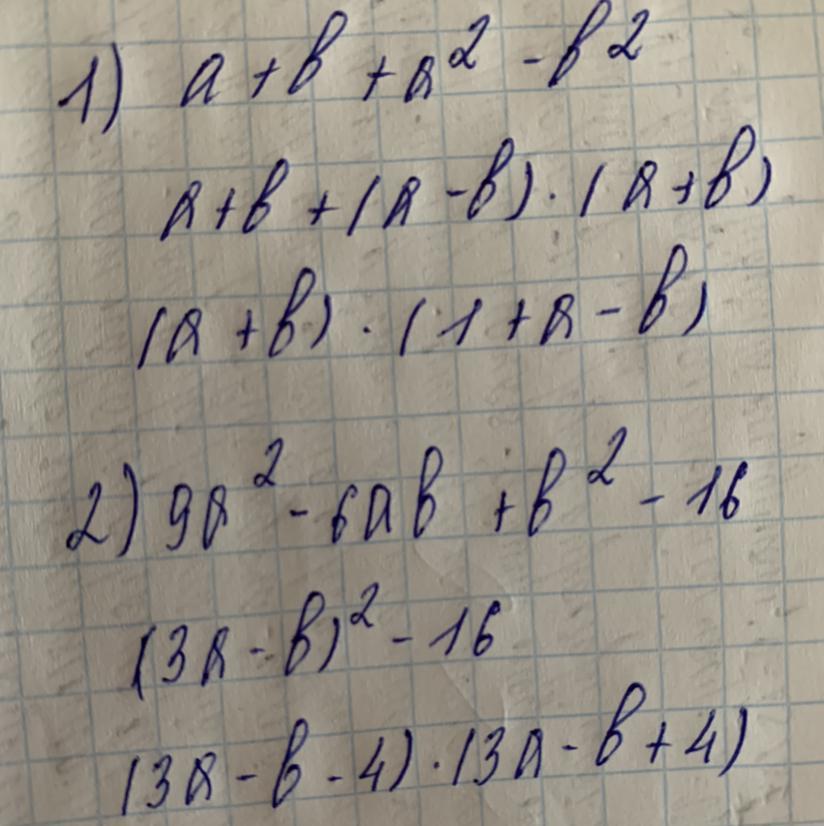 1) a + b + a² - b²
a + b + (a - b) · (a + b)
(a + b) · (1 + a - b)
2) 9a² - 6ab + b² - 16
(3a - b)² - 16
(3a - b - 4) · (3a - b + 4)